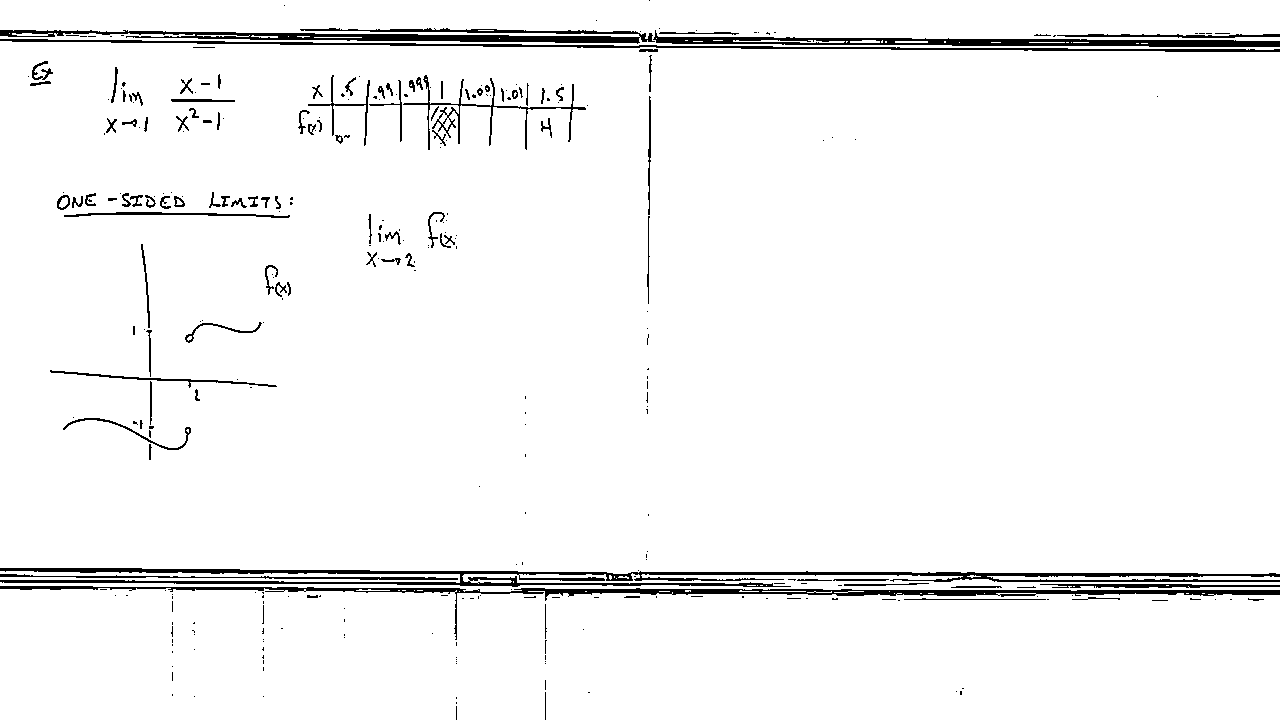 Ex lim x→1 x-1 / x²-1
x .5 .99 .999 1 1.01 1.5
f(x) .4
ONE-SIDED LIMITS:
lim x→2 f(x
f(x)
1
2
-1